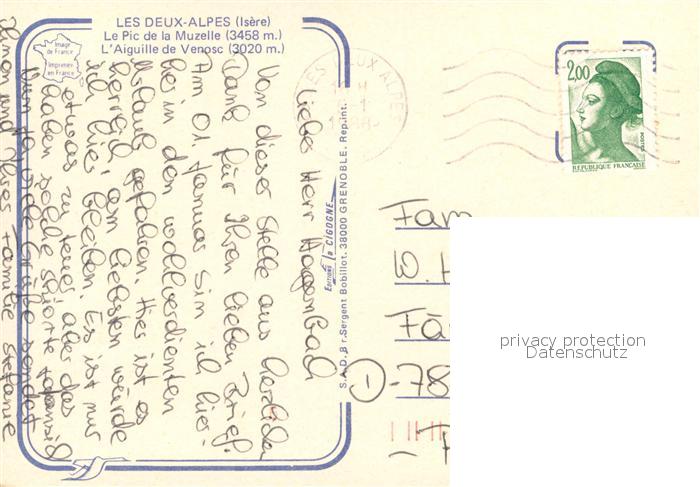 LES DEUX-ALPES (Isère)
Le Pic de la Muzelle (3458 m.)
L'Aiguille de Venosc (3020 m.)
Image
de France
Imprimée
en France
Lieber Herr
Von dieser Stelle aus herzlichen
Dank für Ihren lieben Brief.
Am 01. Januar bin ich hier
in den wohlverdienten
Urlaub gefahren. Hier ist es
herrlich, am liebsten würde
ich hier bleiben. Es ist nur
etwas zu teuer, aber das
haben solche
Viele Grüße sendet
Ihnen und Ihrer Familie Stefanie
Editions la CIGOGNE
S.A.D. 8 r. Sergent Bobillot, 38000 GRENOBLE. Rep. int.
LES DEUX ALPES
2,00
REPUBLIQUE FRANÇAISE
Fam
W. H
Fä
D-78
privacy protection
Datenschutz